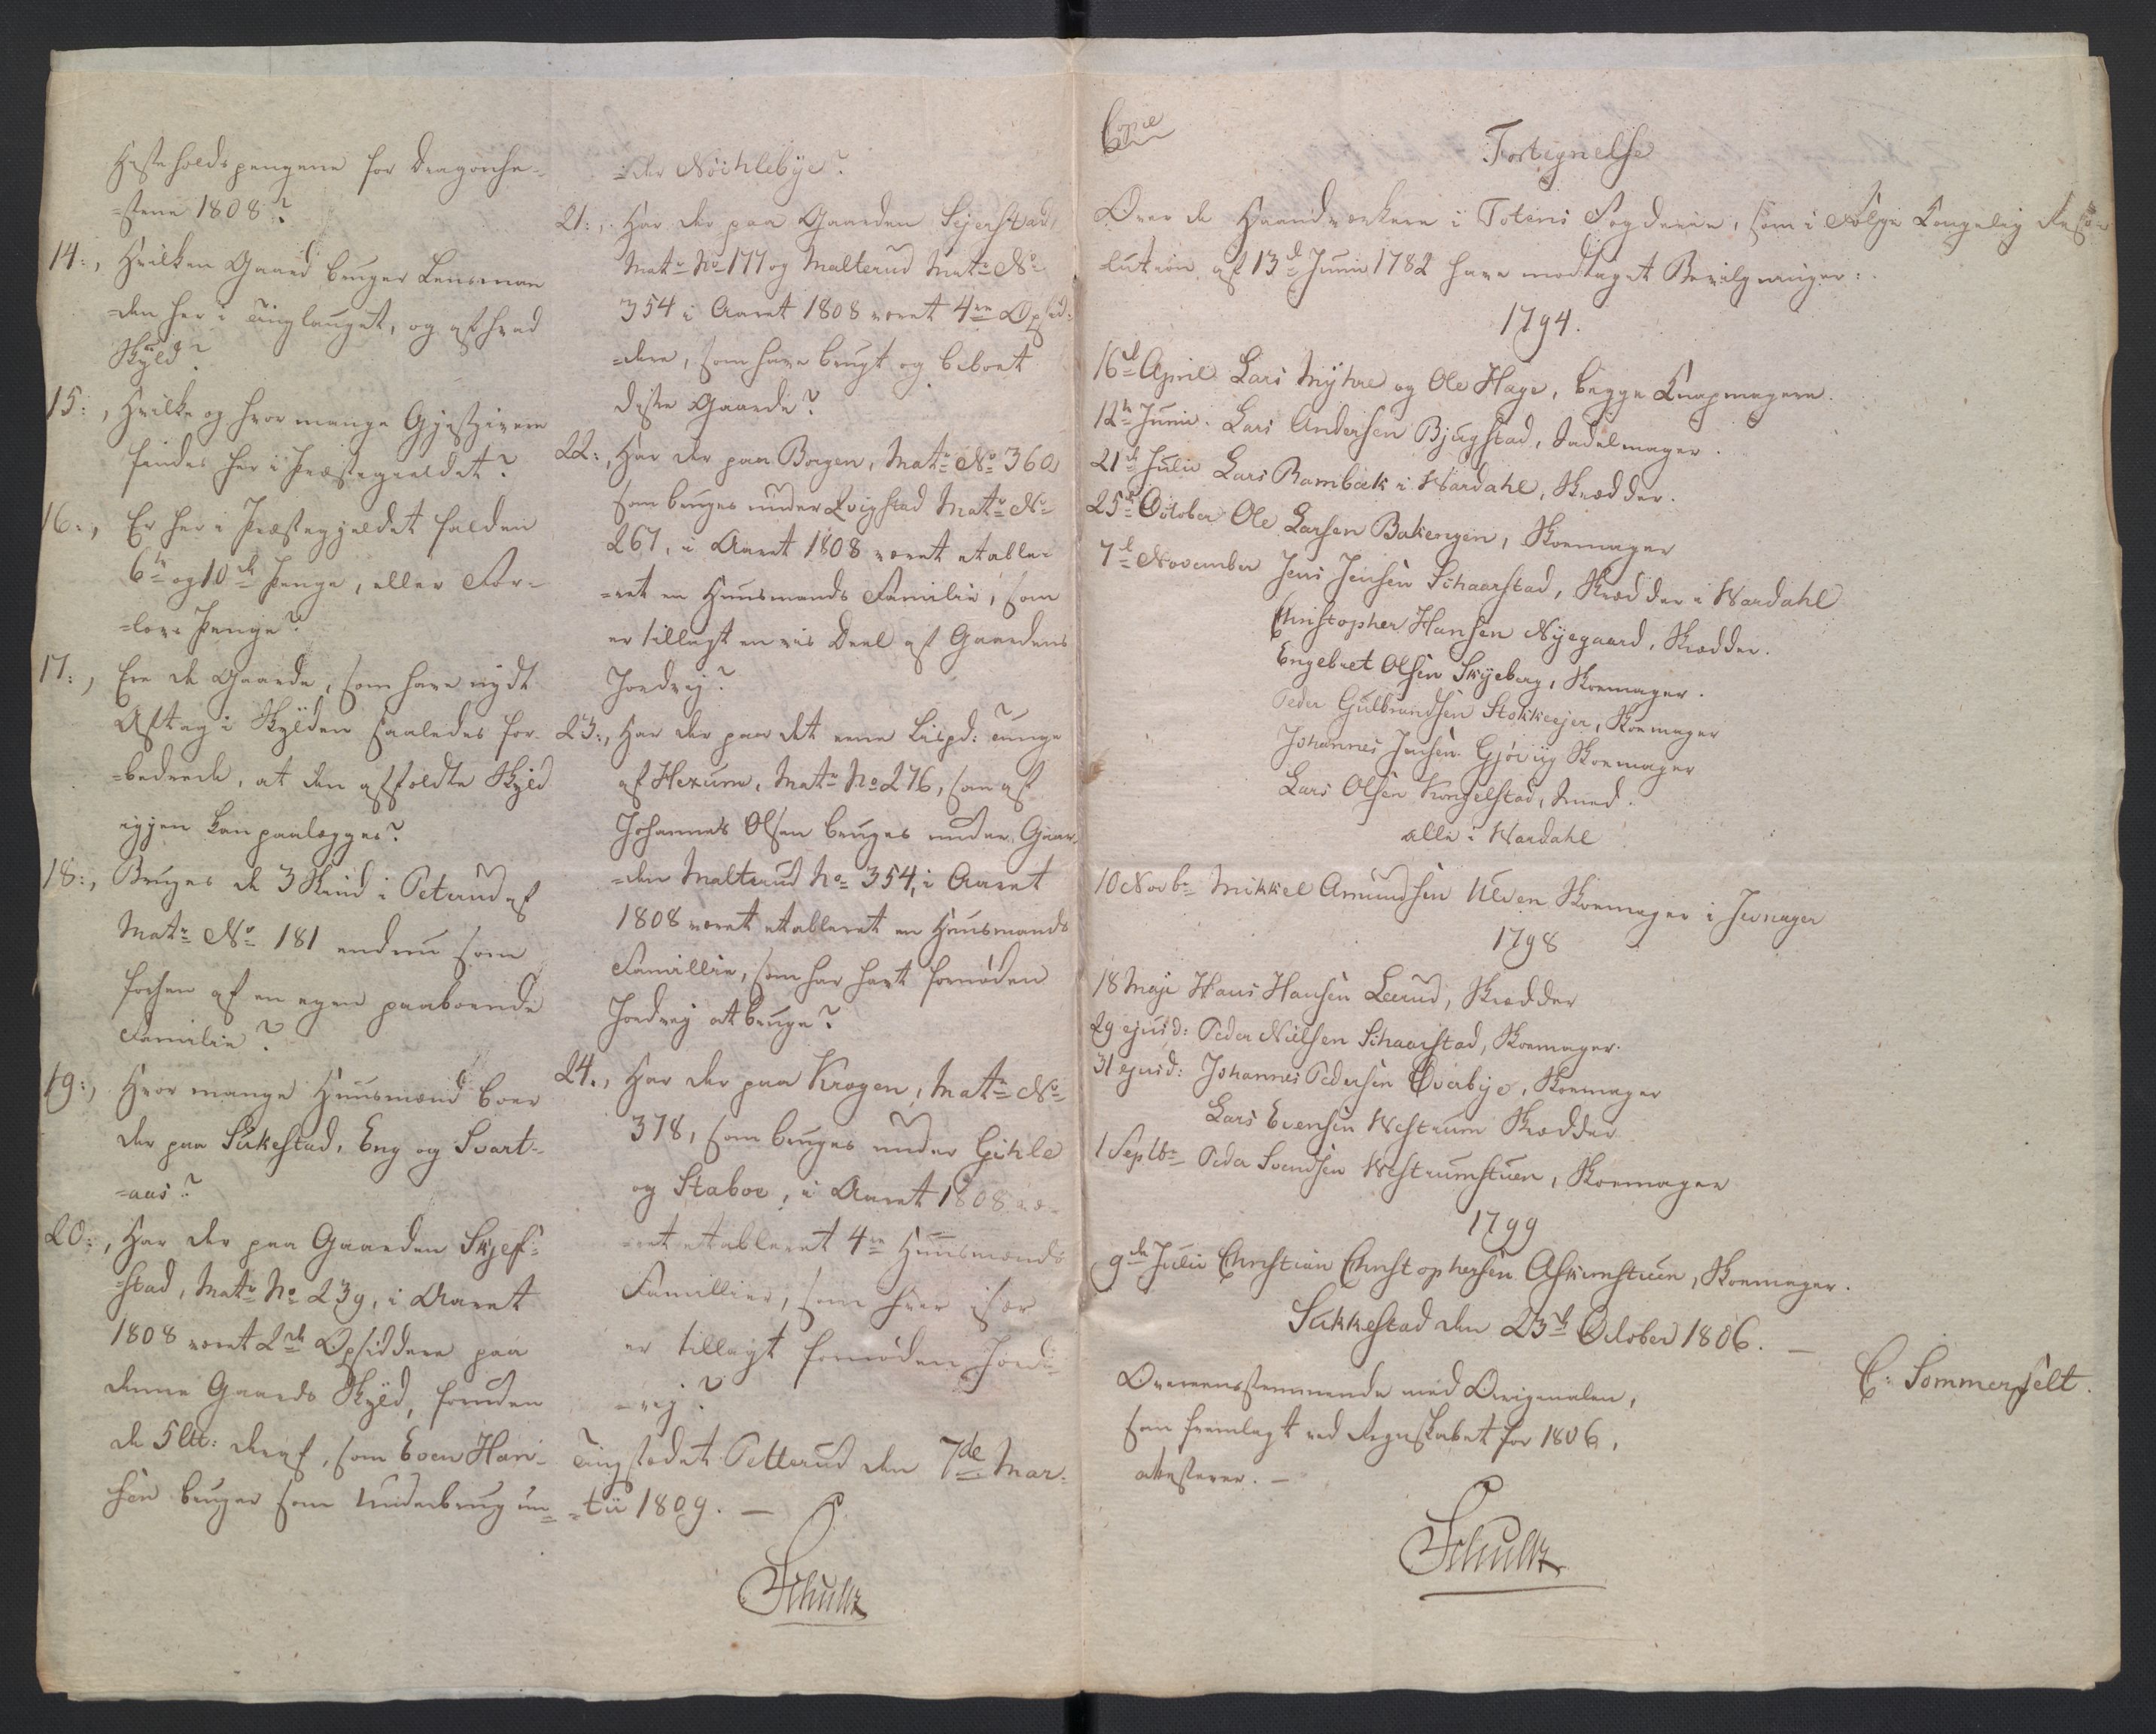 Hesteholdspengene for Dragonhe-
=stene 1808?
14:, Hvilken Gaard bruger Lensman
=den her i Tinglauget, og af hvad
Skyld?
15:, Hvilke og hvor mange Gjestgivere
findes her i Præstegieldet?
16:, Er her i Præstegjeldet falden
6te og 10de Penge, eller For-
=lovs Penge?
17:, Ere de Gaarde, som have nydt
Aftag i Skylden saaledes for-
=bedrede, at den affældte Skyld
igjen kan paalægges?
18:, Bruges de 3 Skind i Peterud af
Matr No 181 endnu som
forhen af en egen paaboende
Familie?
19:, Hvor mange Huusmænd boer
der paa Sukestad, Eng og Svart-
=aas?
20:, Har der paa Gaarden Skjef=
=stad, Matr No 239, i Aaret
1808 været 2de Opsiddere paa
denne Gaards Skyld, foruden
de 5 ltt: deraf, som Even Han-
sen bruger som Underbrug un=
=der Nöihlebye?
21:, Har der paa Gaarden Sejerstad,
Matr No 177 og Malterud Matr No
354 i Aaret 1808 været 4re Opsid-
=dere, som have brugt og beboet
disse Gaarde?
22:, Har der paa Borgen, Matr No 360
som bruges under Qvigstad Matr No
267, i Aaret 1808 været etable-
=ret en Huusmands Familie, som
er tillagt en vis Deel af Gaardens
Jordvej?
23:, Har der paa det eene Lispd: Tunge
af Hexum, Matr No 276, som af
Johannes Olsen bruges under Gaar-
=den Malterud No 354, i Aaret
1808 været etableret en Huusmands
Famillie, som har havt fornöden
Jordvej at bruge?
24., Har der paa Krogen, Matr No
378, som bruges under Gihle
og Staboe, i Aaret 1808 væ-
=ret etableret 4re Huusmands
Famillier, som hver især
er tillagt fornøden Jord-
=vej?
Tingstedet Petterud den 7de Mar-
=tii 1809. —
Schultz
Copie
Fortegnelse
Over de Haandværkere i Totens Fogderie, som i Følge Kongelig Reso-
=lution af 13de Junii 1782 have modtaget Bevilgninger:
1794.
16de April Lars Myhre og Ole Hage, begge Knapmagere.
12te Junii. Lars Andersen Bjugstad, Sadelmager.
21de Julii Lars Rambæk i Wardahl, Skrædder.
25de October Ole Larsen Bakengen, Skoemager
7de November Jens Jensen Schaarstad, Skrædder i Wardahl
Christopher Hansen Nyegaard, Skrædder.
Engebret Olsen Skyeberg, Skoemager.
Peder Gulbrandsen Stokkeejer, Skoemager
Johannes Jensen Gjövig Skoemager
Lars Olsen Kongelstad, Smed.
alle i Wardahl
10 Novbr Mikkel Amundsen Ulven Skoemager i Jevnager
1798
18 Maji Hans Hansen Leerud, Skrædder
29 ejusd: Peder Nielsen Schaarstad, Skoemager.
31 ejusd: Johannes Pedersen Överbye, Skoemager
Lars Evensen Westrum Skrædder
1 Septbr Peder Svendsen Westrumstuen, Skoemager
1799
9de Julii Christian Christophersen Askimstuen, Skoemager.
Sukkestad den 23de October 1806. —
C. Sommerfelt.
Overeensstemmende med Originalen,
som fremlagt ved Regnskabet for 1806,
attesterer. —
Schultz